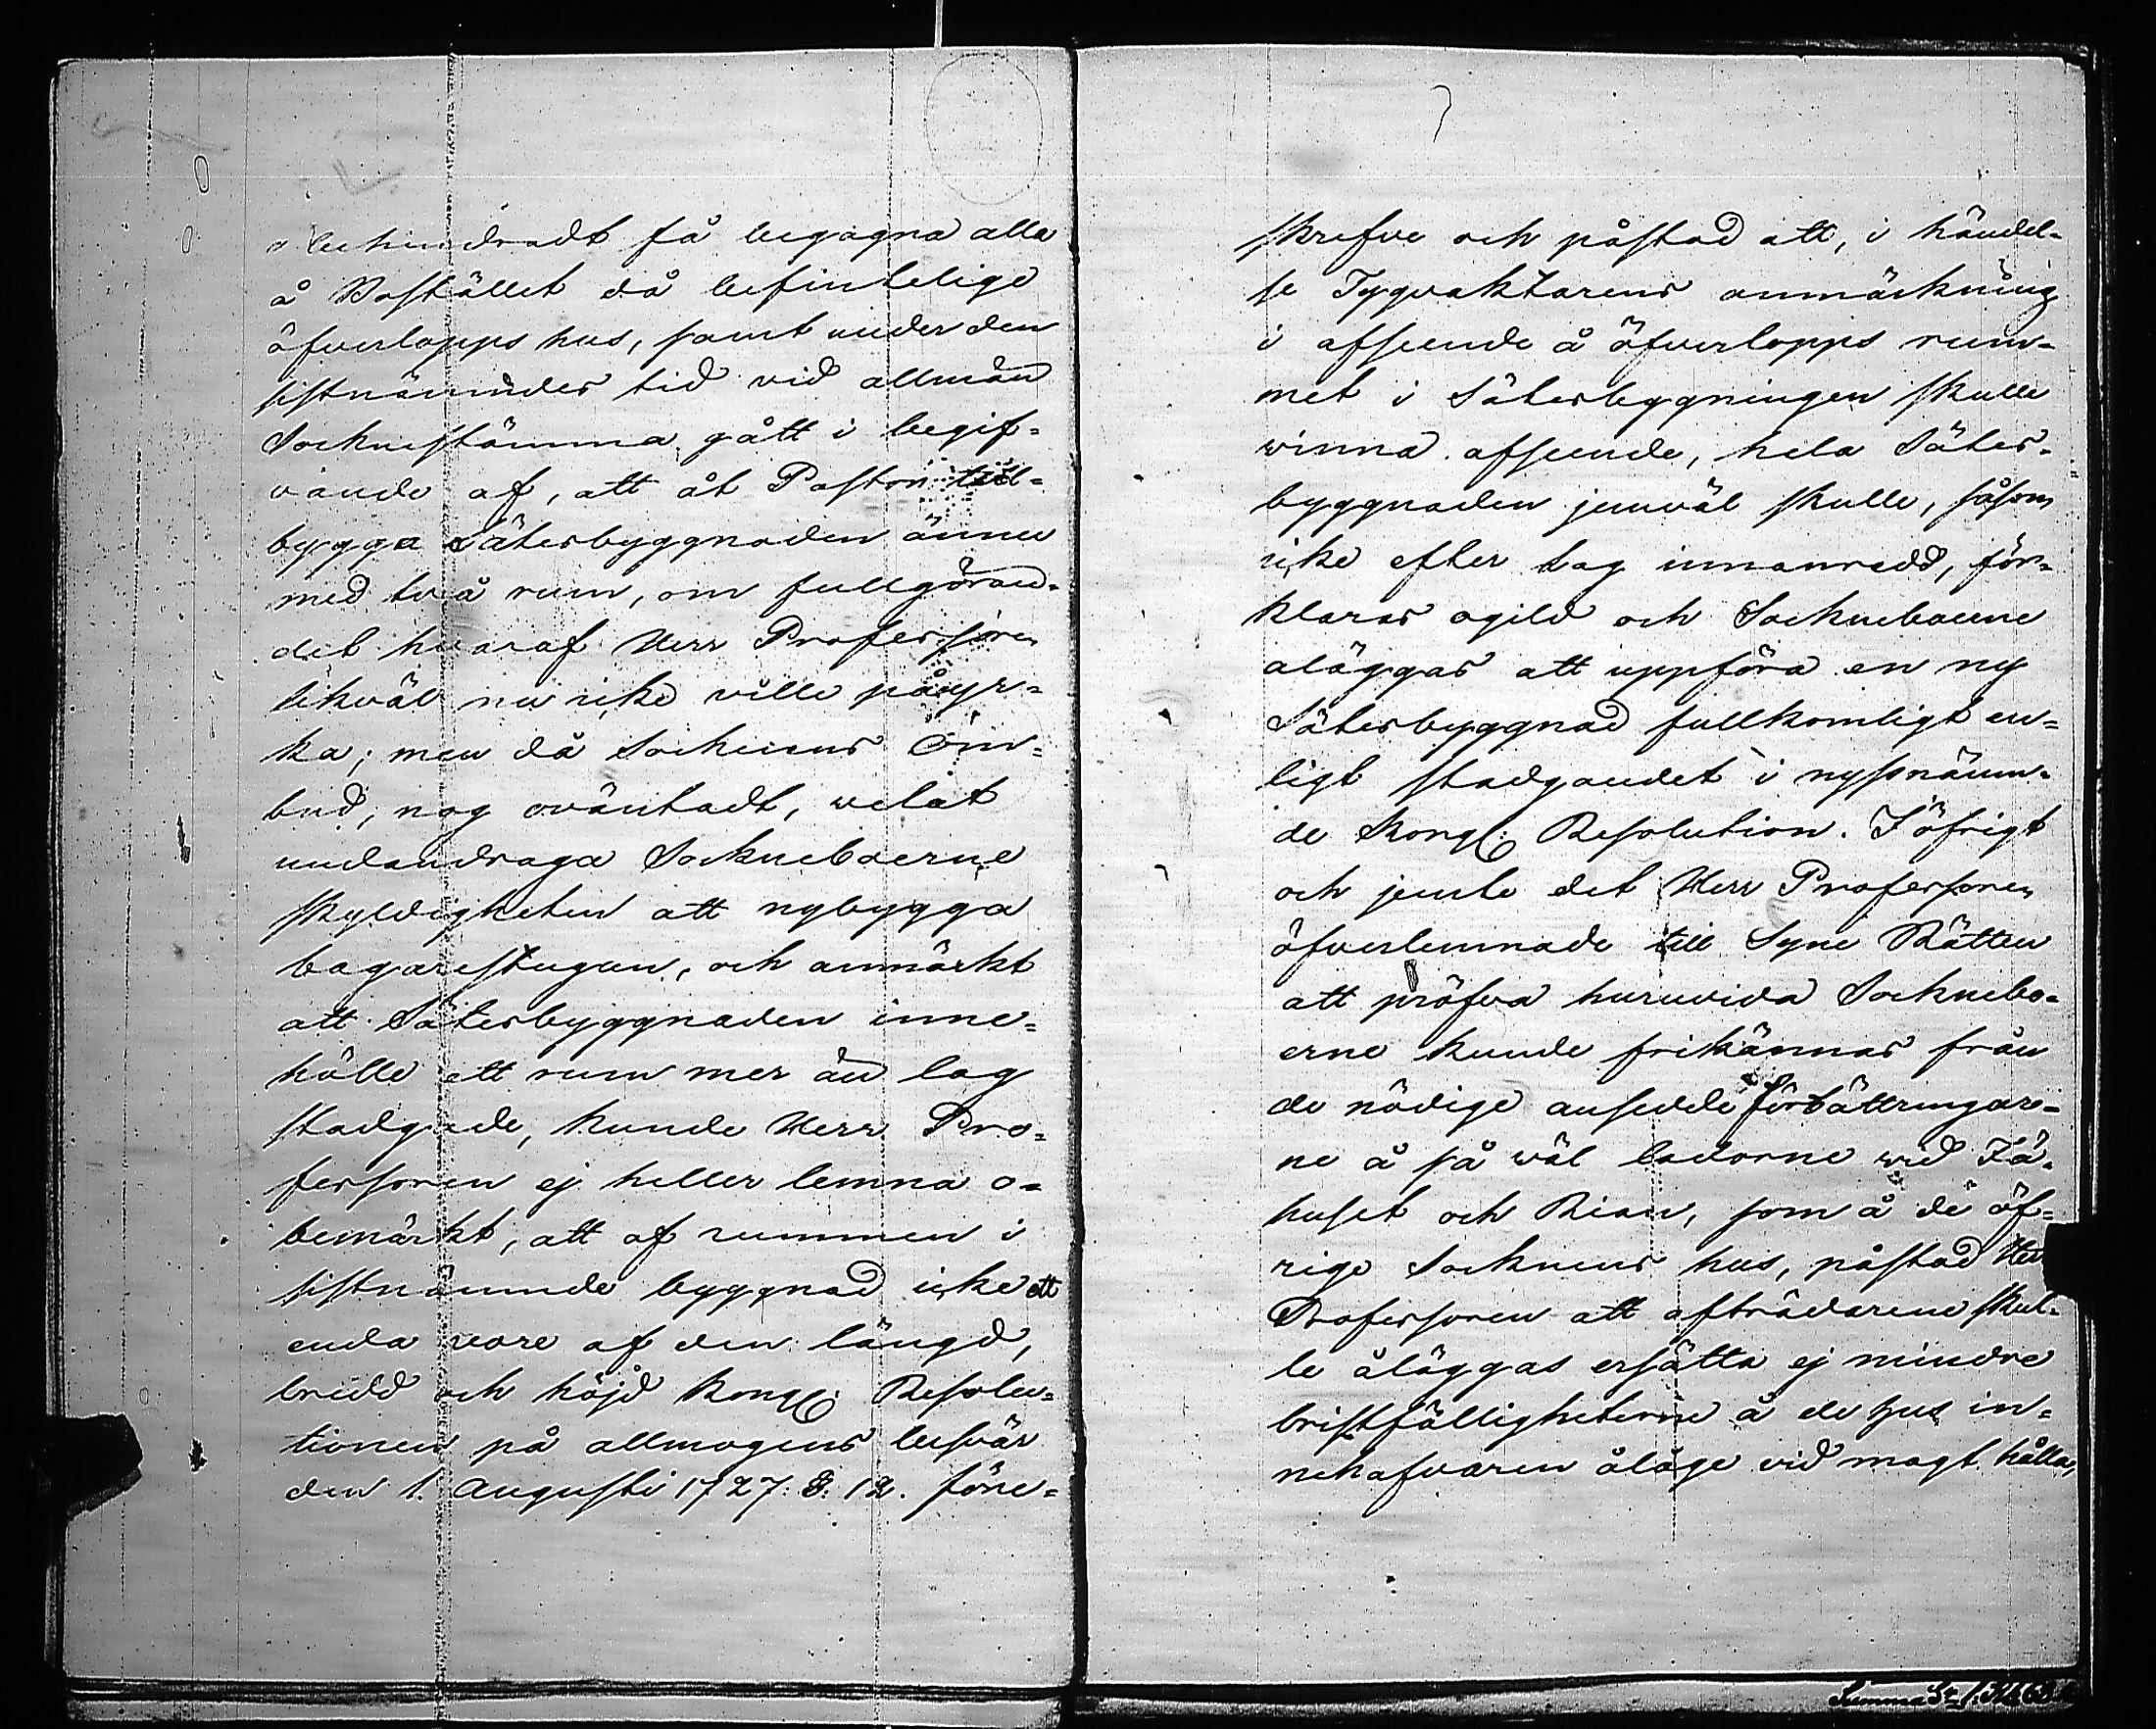 obehindradt få begagna alla
å Bostället då befintelige
öfverlopps hus, samt under den
sistnämndes tid vid allmän
Socknestämma gått i begif-
vande af, att åt Pastor till-
bygga Sätesbyggnaden ännu
med två rum, om fullgöran-
det hvaraf Herr Professoren
likväl nu icke ville påyr-
ka; men då Socknens Om-
bud, nog oväntadt, velat
undandraga Sockneboerne
skyldigheten att nybygga
bagarestugan, och anmärkt
att Sätesbyggnaden inne-
hölle ett rum mer än lag
stadgade, kunde Herr Pro-
fessoren ej heller lemna o-
bemärkt, att af rummen i
sistnämnde byggnad icke ett
enda vore af den längd,
bredd och höjd Kongl: Resolu-
tionen på allmogens besvär
den 1. Augusti 1727. §. 12. före-
skrefve och påstod att, i händel-
se Tygvaktarens anmärkning
i afseende å öfverlopps rum-
met i Sätesbygningen skulle
vinna afseende, hela Sätes-
byggnaden jemväl skulle, såsom
icke efter lag innanredd, för-
klaras ogild och Sockneboerne
aläggas att uppföra en ny
Sätesbyggnad fullkomligt en-
ligt stadgandet i nyssnämn-
de Kongl: Resolution. I öfrigt
och jemte det Herr Professoren
öfverlemnade till Syne Rätten
att pröfva huruvida Sockenbo-
erne kunde frikännas från
de nödige ansedde förbättringar-
ne å så väl ladorne vid Fä-
huset och Rian, som å de öf-
rige Socknens hus, påstod Herr
Professoren att afträdarene skul-
le åläggas ersätta ej mindre
bristfälligheterne å de hus in-
nehafvaren ålåge vid magt hålla,